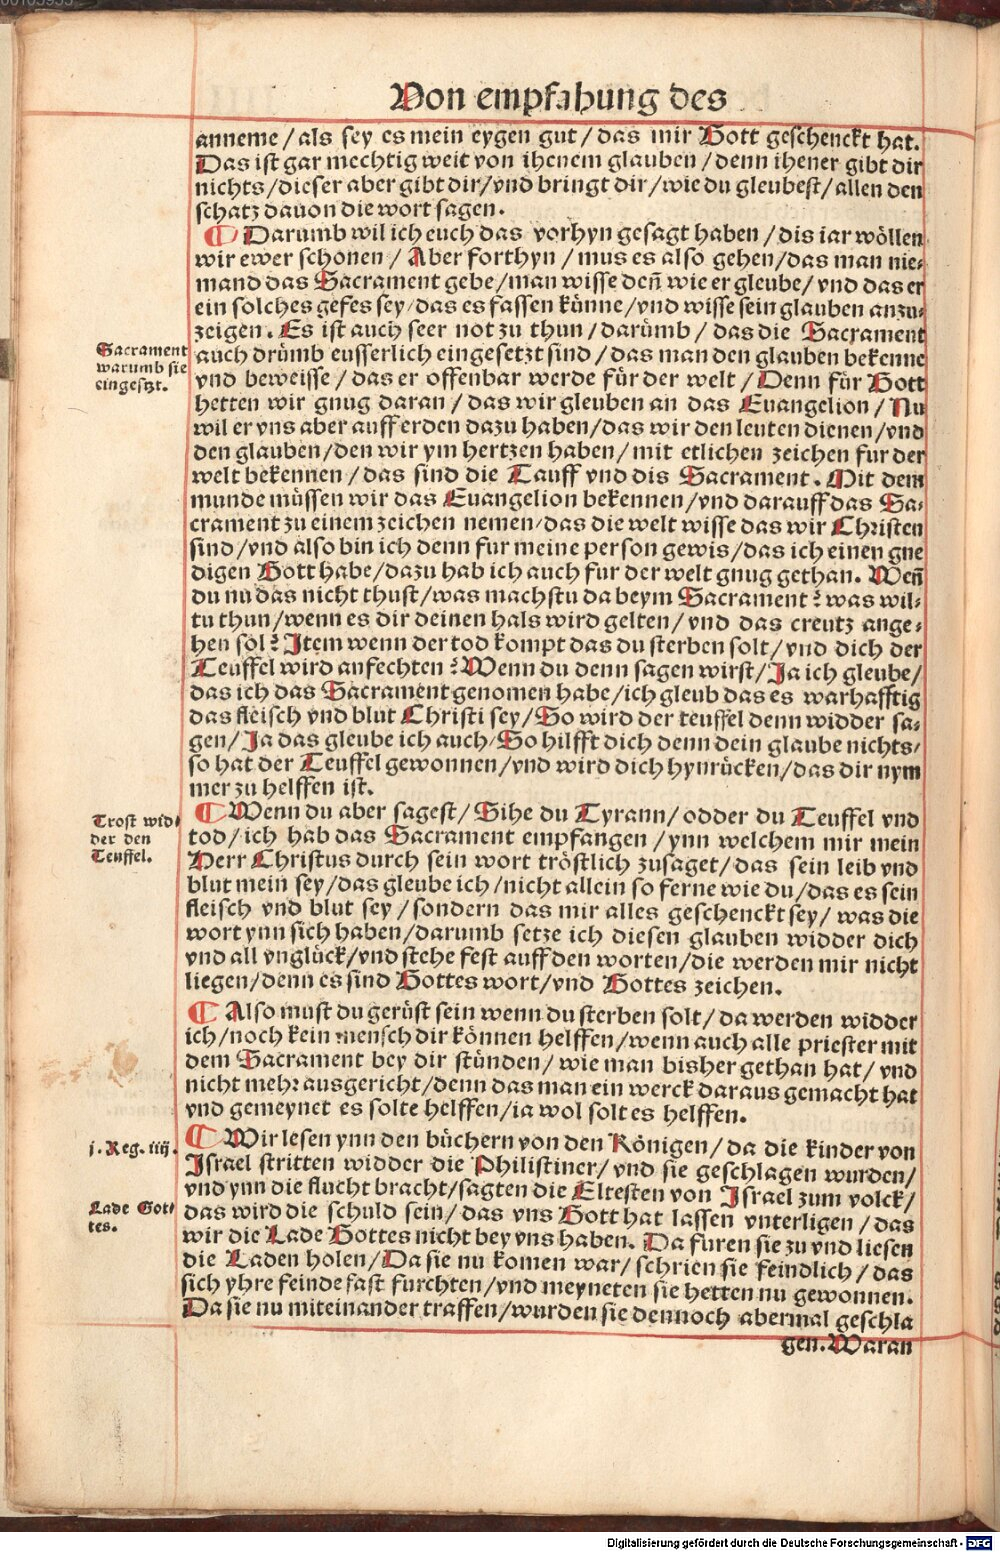 Von empfahung des
anneme / als sey es mein eygen gut / das mir Gott geschenckt hat.
Das ist gar mechtig weit von ihenem glauben / denn ihener gibt dir
nichts / dieser aber gibt dir / vnd bringt dir / wie du gleubest / allen den
schatz dauon die wort sagen.
¶ Darumb wil ich euch das vorhyn gesagt haben / dis iar wöllen
wir ewer schonen / Aber forthyn / mus es also gehen / das man nie⸗
mand das Sacrament gebe / man wisse deñ wie er gleube / vnd das er
ein solches gefes sey / das es fassen künne / vnd wisse sein glauben anzu⸗
zeigen. Es ist auch seer not zu thun / darümb / das die Sacrament
Sacrament
warumb sie
eingesetzt.
auch drümb eusserlich eingesetzt sind / das man den glauben bekenne
vnd beweisse / das er offenbar werde für der welt / Denn für Gott
hetten wir gnug daran / das wir gleuben an das Euangelion / Nu
wil er vns aber auff erden dazu haben / das wir den leuten dienen / vnd
den glauben / den wir ym hertzen haben / mit etlichen zeichen fur der
welt bekennen / das sind die Tauff vnd dis Sacrament. Mit dem
munde müssen wir das Euangelion bekennen / vnd darauff das Sa⸗
crament zu einem zeichen nemen / das die welt wisse das wir Christen
sind / vnd also bin ich denn fur meine person gewis / das ich einen gne
digen Gott habe / dazu hab ich auch fur der welt gnug gethan. Weñ
du nu das nicht thust / was machstu da beym Sacrament? was wil⸗
tu thun / wenn es dir deinen hals wird gelten / vnd das creutz ange⸗
hen sol? Item wenn der tod kompt das du sterben solt / vnd dich der
Teuffel wird anfechten? Wenn du denn sagen wirst / Ja ich gleube /
das ich das Sacrament genomen habe / ich gleub das es warhafftig
das fleisch vnd blut Christi sey / So wird der teuffel denn widder sa⸗
gen / Ja das gleube ich auch / So hilfft dich denn dein glaube nichts /
so hat der Teuffel gewonnen / vnd wird dich hynrücken / das dir nym
mer zu helffen ist.
Trost wid⸗
der den
Teuffel.
¶ Wenn du aber sagest / Sihe du Tyrann / odder du Teuffel vnd
tod / ich hab das Sacrament empfangen / ynn welchem mir mein
Herr Christus durch sein wort tröstlich zusaget / das sein leib vnd
blut mein sey / das gleube ich / nicht allein so ferne wie du / das es sein
fleisch vnd blut sey / sondern das mir alles geschenckt sey / was die
wort ynn sich haben / darumb setze ich diesen glauben widder dich
vnd all vnglück / vnd stehe fest auff den worten / die werden mir nicht
liegen / denn es sind Gottes wort / vnd Gottes zeichen.
¶ Also must du gerüst sein wenn du sterben solt / da werden widder
ich / noch kein mensch dir können helffen / wenn auch alle priester mit
dem Sacrament bey dir stünden / wie man bisher gethan hat / vnd
nicht mehr ausgericht / denn das man ein werck daraus gemacht hat
vnd gemeynet es solte helffen / ia wol solt es helffen.
j. Reg. iiij.
¶ Wir lesen ynn den büchern von den Königen / da die kinder von
Israel stritten widder die Philistiner / vnd sie geschlagen wurden /
vnd ynn die flucht bracht / sagten die Eltesten von Israel zum volck /
Lade Got⸗
tes.
das wird die schuld sein / das vns Gott hat lassen vnterligen / das
wir die Lade Gottes nicht bey vns haben. Da furen sie zu vnd liesen
die Laden holen / Da sie nu komen war / schrien sie feindlich / das
sich yhre feinde fast furchten / vnd meyneten sie hetten nu gewonnen.
Da sie nu miteinander traffen / wurden sie dennoch abermal geschla
gen. Waran
Digitalisierung gefördert durch die Deutsche Forschungsgemeinschaft - DFG